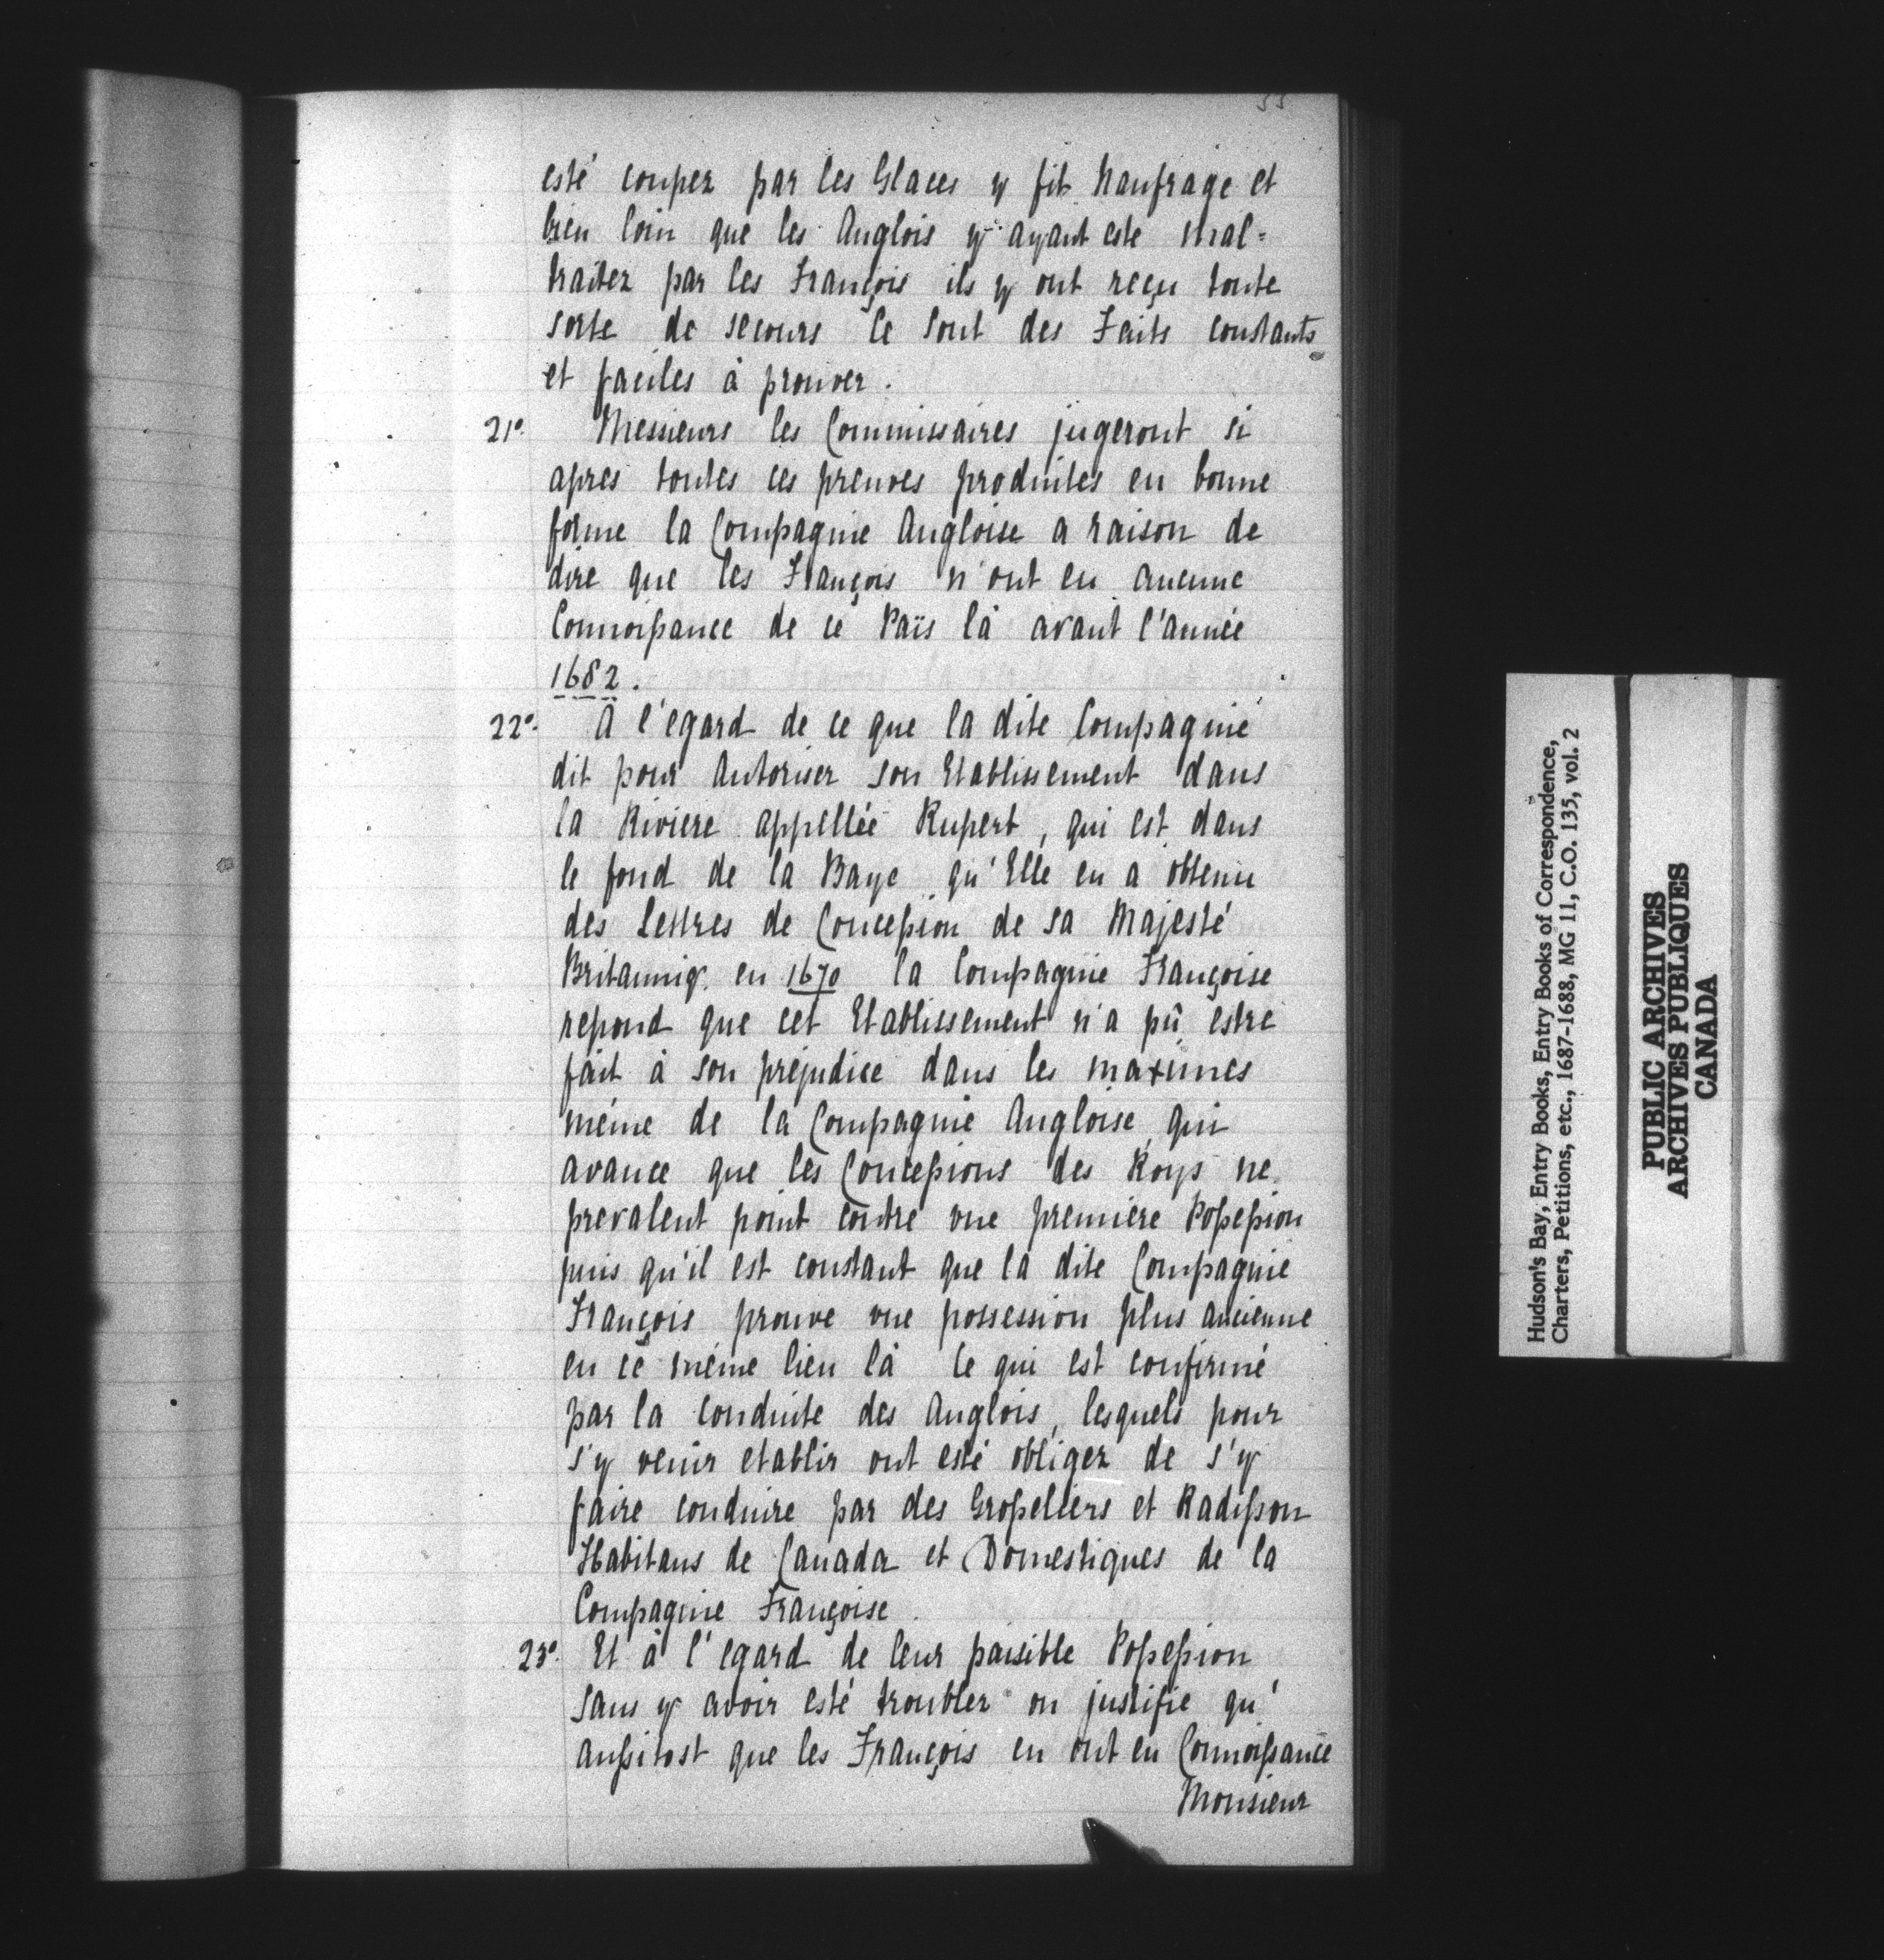 55
esté coupez par les Glaces y fit Naufrage et
bien loin que les Anglois y ayant esté mal=
traitez par les François ils y ont reçu toute
sorte de secours Ce sont des Faits constants
et faciles à prouver.
21º. Messieurs les Commissaires jugeront si
apres toutes ces preuves produites en bonne
forme la Compagnie Angloise a raison de
dire que les François n'ont eu aucune
Connoissance de ce Païs là avant l'année
1682.
22º. A l'egard de ce que la dite Compagnie
dit pour Autoriser son Etablissement dans
la Riviere appellée Rupert, qui est dans
le fond de la Baye qu'Elle en a obtenu
des Lettres de Concession de sa Majesté
Britanniq. en 1670 la Compagnie Françoise
repond que cet Etablissement n'a pû estre
fait à son prejudice dans les maximes
même de la Compagnie Angloise, qui
avance que les Concessions des Roys ne
prevalent point contre une premiere Possession
puis qu'il est constant que la dite Compagnie
François prouve une possession plus ancienne
en ce même lieu là Ce qui est confirmé
par la conduite des Anglois, lesquels pour
s'y venir etablir ont esté obligez de s'y
faire conduire par des Groseliers et Radisson
Habitans de Canada et Domestiques de la
Compagnie Françoise.
23º. Et à l'egard de leur paisible Possession
sans y avoir esté troublez on justifie qu'
aussitost que les François en ont eu Connoissance
Monsieur
Hudson's Bay, Entry Books, Entry Books of Correspondence,
Charters, Petitions, etc., 1687-1688, MG 11, C.O. 135, vol. 2
PUBLIC ARCHIVES
ARCHIVES PUBLIQUES
CANADA